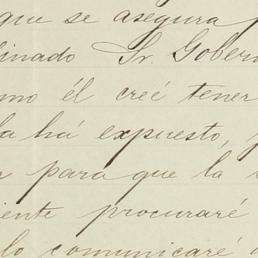 que se asegura
binado Sr. Gobern
mo él creé tener
la há expuesto,
para que la
iente procuraré
lo comunicaré